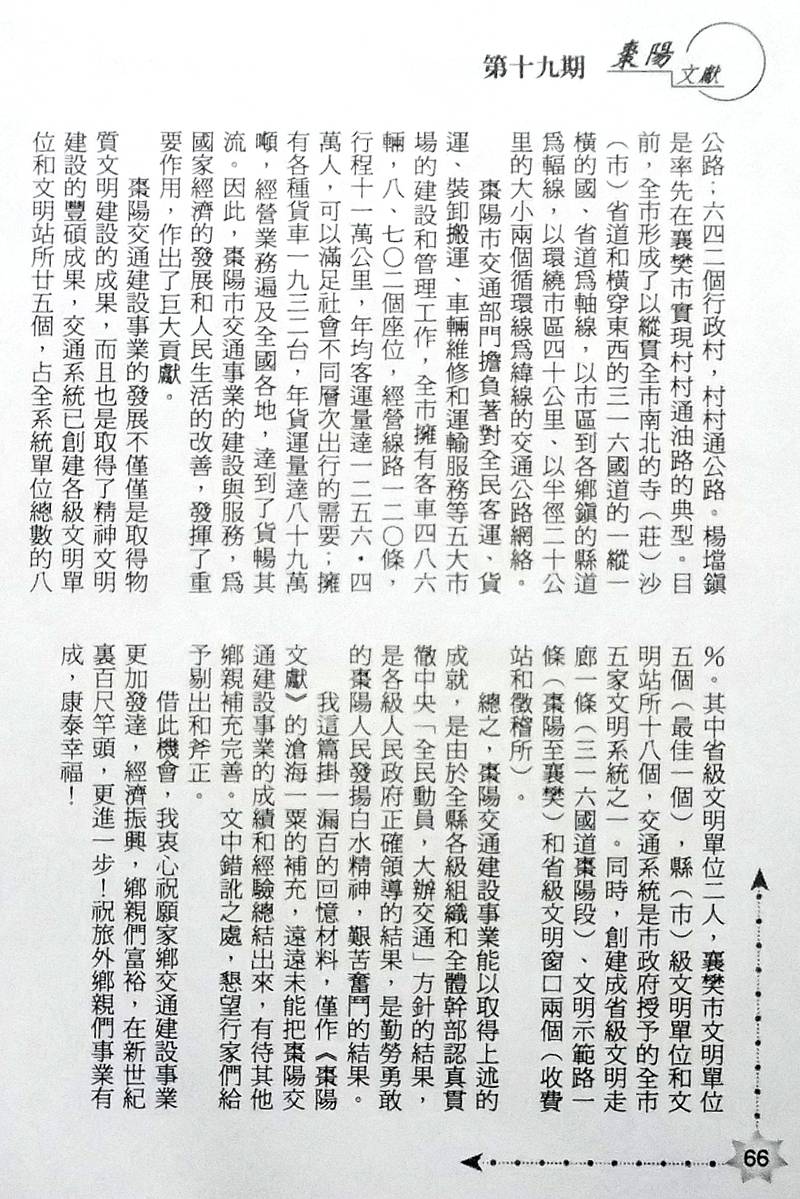 第十九期
棗陽
文獻
公路；六四二個行政村，村村通公路。楊壋鎮
是率先在襄樊市實現村村通油路的典型。目
前，全市形成了以縱貫全市南北的寺（莊）沙
（市）省道和橫穿東西的三一六國道的一縱一
橫的國、省道爲軸線，以市區到各鄉鎮的縣道
爲輻線，以環繞市區四十公里、以半徑二十公
里的大小兩個循環線爲緯線的交通公路網絡。
棗陽市交通部門擔負著對全民客運、貨
運、裝卸搬運、車輛維修和運輸服務等五大市
場的建設和管理工作，全市擁有客車四八六
輛，八、七〇二個座位，經營線路一二〇條，
行程十一萬公里，年均客運量達一二五六·四
萬人，可以滿足社會不同層次出行的需要；擁
有各種貨車一九三二台，年貨運量達八十九萬
噸，經營業務遍及全國各地，達到了貨暢其
流。因此，棗陽市交通事業的建設與服務，爲
國家經濟的發展和人民生活的改善，發揮了重
要作用，作出了巨大貢獻。
棗陽交通建設事業的發展不僅僅是取得物
質文明建設的成果，而且也是取得了精神文明
建設的豐碩成果，交通系統已創建各級文明單
位和文明站所廿五個，占全系統單位總數的八
%。其中省級文明單位二人，襄樊市文明單位
五個（最佳一個），縣（市）級文明單位和文
明站所十八個，交通系統是市政府授予的全市
五家文明系統之一。同時，創建成省級文明走
廊一條（三一六國道棗陽段）、文明示範路一
條（棗陽至襄樊）和省級文明窗口兩個（收費
站和徵稽所）。
總之，棗陽交通建設事業能以取得上述的
成就，是由於全縣各級組織和全體幹部認真貫
徹中央「全民動員，大辦交通」方針的結果，
是各級人民政府正確領導的結果，是勤勞勇敢
的棗陽人民發揚白水精神，艱苦奮鬥的結果。
我這篇掛一漏百的回憶材料，僅作《棗陽
文獻》的滄海一粟的補充，遠遠未能把棗陽交
通建設事業的成績和經驗總結出來，有待其他
鄉親補充完善。文中錯訛之處，懇望行家們給
予剔出和斧正。
借此機會，我衷心祝願家鄉交通建設事業
更加發達，經濟振興，鄉親們富裕，在新世紀
裏百尺竿頭，更進一步！祝旅外鄉親們事業有
成，康泰幸福！
66